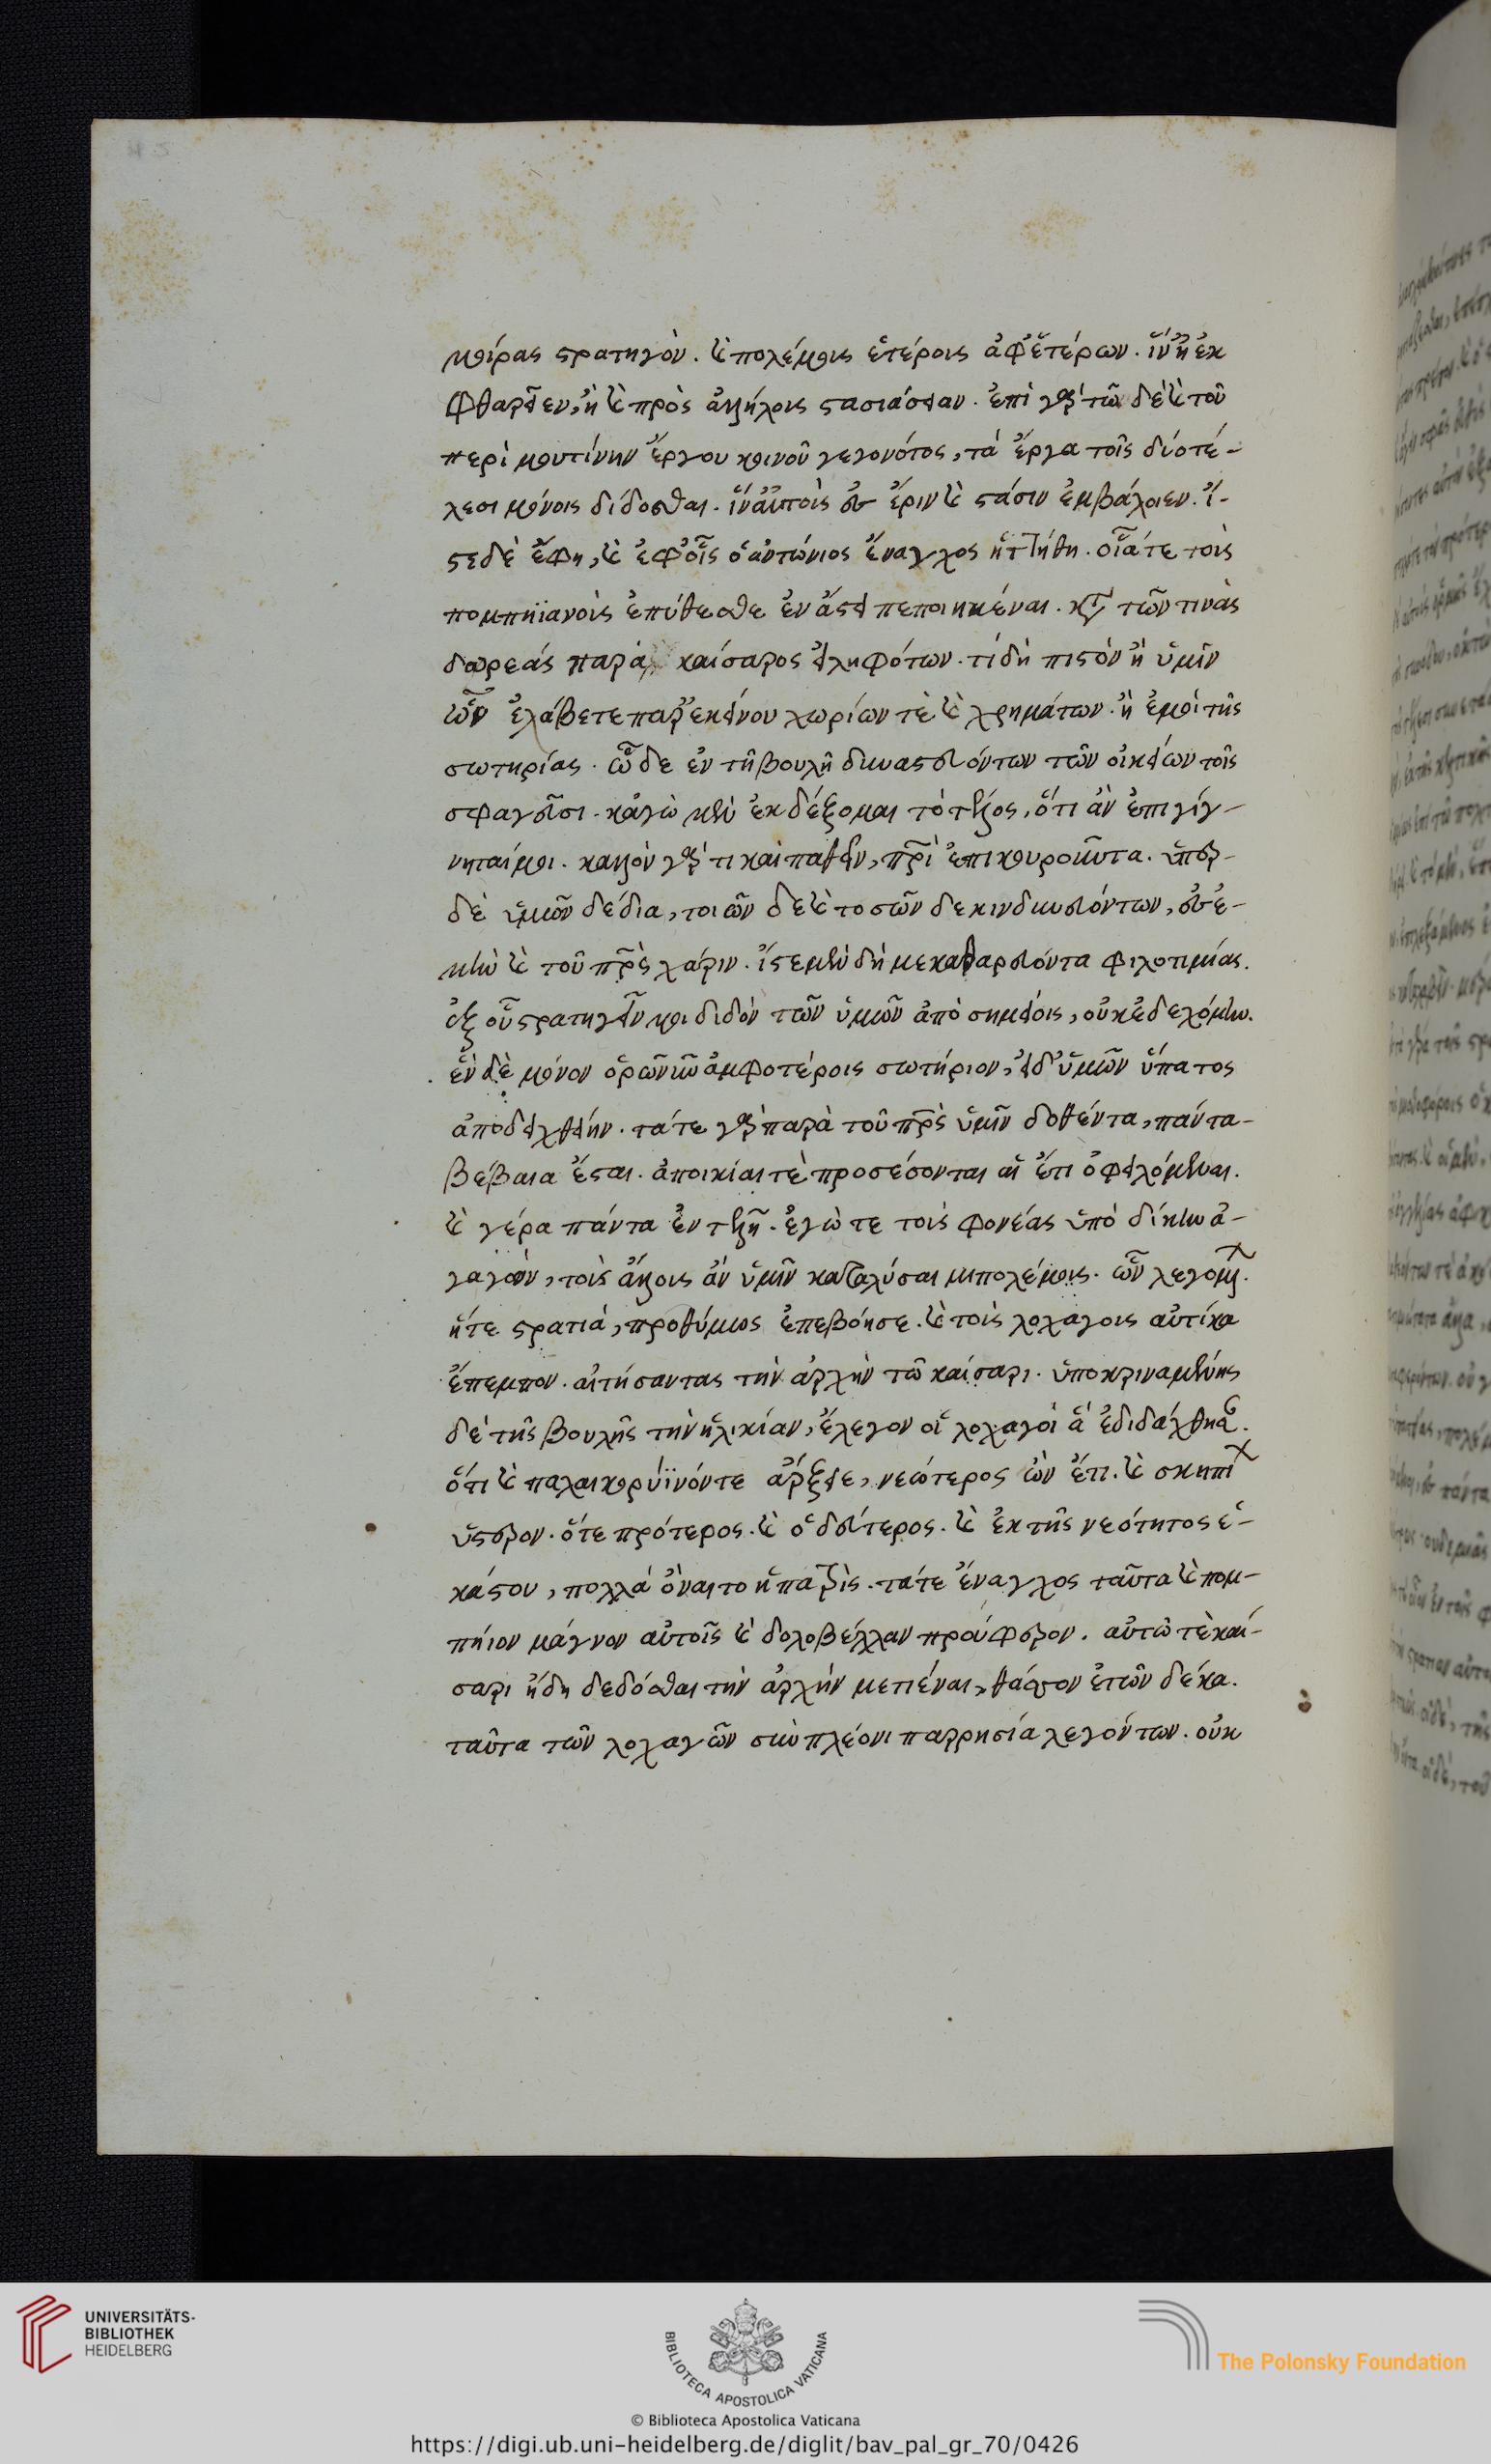 μοίρας στρατηγὸν. καὶ πολέμοις ἑτέροις ἀφ' ἑτέρων. ἵν' ἢ ἐκ
φθαρεῖεν, ἢ καὶ πρὸς ἀλλήλους στασιάσειαν. ἐπὶ γὰρ τῶδε καὶ τοῦ
περὶ μουτίνην ἔργου κοινοῦ γεγονότος, τὰ ἔργα τοῖς δύο τέ-
λεσι μόνοις δίδοσθαι. ἵν' αὐτοὺς ἐς ἔριν καὶ στάσιν ἐμβάλοιεν. ἴ-
στε δὲ ἔφη, καὶ ἐφ' οἷς ὁ ἀντώνιος ἔναγχος ἡττήθη. οἷά τε τοὺς
πομπηϊανοὺς ἐπύθεσθε ἐν ἄστει πεποιηκέναι. κατὰ τῶν τινὰς
δωρεάς παρὰ καίσαρος εἰληφότων. τί δὴ πιστὸν ἢ ὑμῖν
ὧν ἐλάβετε παρ' ἐκείνου χωρίων τὲ καὶ χρημάτων. ἢ ἐμοὶ τῆς
σωτηρίας. ὧδε ἐν τῆ βουλῆ δυναστευόντων τῶν οἰκείων τοῖς
σφαγεῦσι. κἀγὼ μὲν ἐκδέξομαι τὸ τέλος, ὅτι ἂν ἐπιγίγ-
νηταί μοι. καλὸν γάρ τι καὶ παθεῖν, πατρὶ ἐπικουροῦντα. ὑπὲρ
δὲ ὑμῶν δέδια, τοιῶνδε καὶ τοσῶνδε κινδυνευόντων, ἐς ἐ-
μὲ καὶ τοῦ πατρὸς χάριν. ἴστε μὲν δή με καθαρεύοντα φιλοτιμίας.
ἐξ οὗ στρατηγεῖν μοι διδόντων ὑμῶν ἀπὸ σημείοις, οὐκ ἐδεχόμην.
ἓν δὲ μόνον ὁρῶ νῦν ἀμφοτέροις σωτήριον, εἰ δι' ὑμῶν ὕπατος
ἀποδειχθείην. τά τε γὰρ παρὰ τοῦ πατρὸς ὑμῖν δοθέντα, πάντα
βέβαια ἔσται. ἀποικίαι τὲ προσέσονται αἱ ἔτι ὀφειλόμεναι.
καὶ γέρα πάντα ἐντελῆ. ἐγώ τε τοὺς φονέας ὑπὸ δίκην ἀ-
γαγὼν, τοὺς ἄλλους ἂν ὑμῖν καταλύσαιμι πολέμους. ὧν λεγομ.
ἥτε στρατιὰ, προθύμως ἐπεβόησε. καὶ τοὺς λοχαγοὺς αὐτίκα
ἔπεμπον. αἰτήσαντας τὴν ἀρχὴν τῶ καίσαρι. ὑποκριναμένης
δὲ τῆς βουλῆς τὴν ἡλικίαν, ἔλεγον οἱ λοχαγοὶ ἃ ἐδιδάχθησαν.
ὅτι καὶ πάλαι κορυΐνόν τε ἄρξειε, νεώτερος ὢν ἔτι. καὶ σκηπί
ὕστερον. ὅτε πρότερος. καὶ ὁ δεύτερος. καὶ ἐκ τῆς νεότητος ἑ-
κάστου, πολλὰ ὄναιτο ἡ πατρὶς. τά τε ἔναγχος ταῦτα καὶ πομ-
πήιον μάγνον αὐτοῖς καὶ δολοβέλλαν προύφερον. αὐτῶ τὲ καί-
σαρι ἤδη δεδόσθαι τὴν ἀρχὴν μετιέναι, θᾶσσον ἐτῶν δέκα.
ταῦτα τῶν λοχαγῶν σὺν πλέονι παρρησία λεγόντων. οὐκ
UNIVERSITÄTS-
BIBLIOTHEK
HEIDELBERG
BIBLIOTECA APOSTOLICA VATICANA
The Polonsky Foundation
© Biblioteca Apostolica Vaticana
https://digi.ub.uni-heidelberg.de/diglit/bav_pal_gr_70/0426